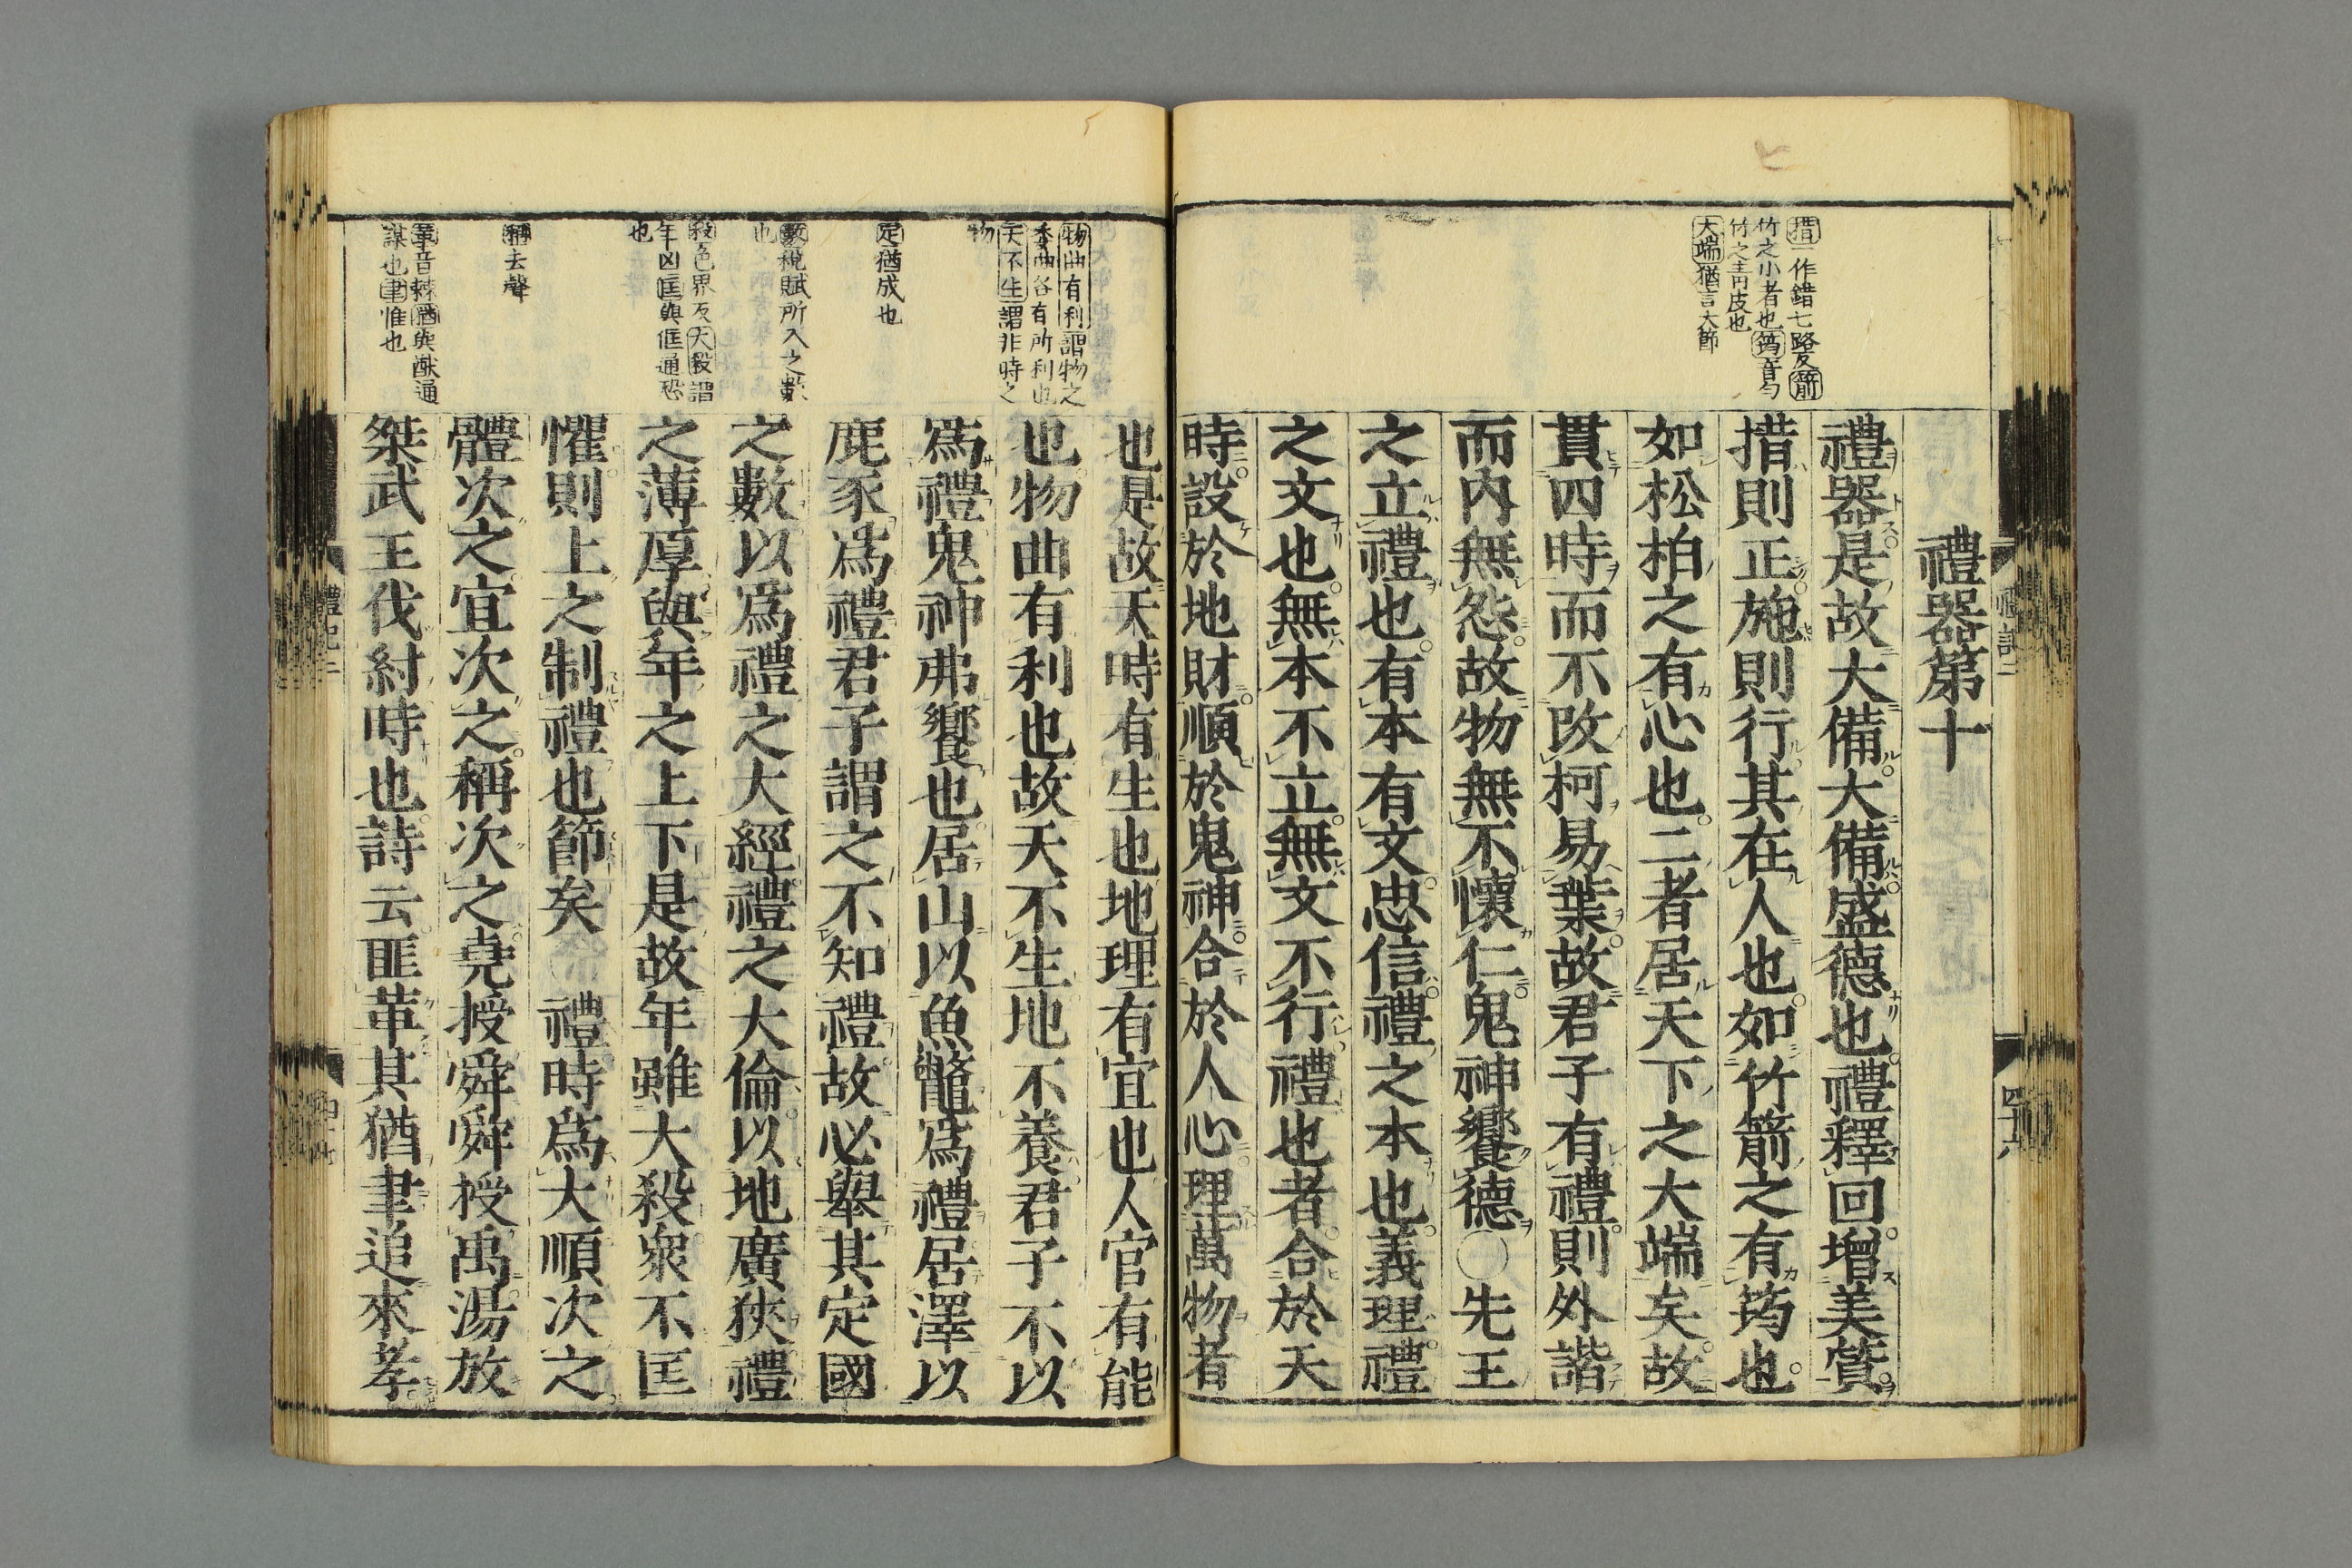 措一作錯七路反箭
竹之小者也筠音勻
竹之靑皮也
大端猶言大節
禮器第十
禮器是故大備大備盛德也禮釋回增美質
措則正施則行其在人也如竹箭之有筠也
如松柏之有心也二者居天下之大端矣故
貫四時而不改柯易葉故君子有禮則外諧
而內無怨故物無不懷仁鬼神饗德○先王
之立禮也有本有文忠信禮之本也義理禮
之文也無本不立無文不行禮也者合於天
時設於地財順於鬼神合於人心理萬物者
物曲有利謂物之
委曲各有所利也
天不生謂非時之
物
定猶成也
數稅賦所入之數
也
殺色界反大殺謂
年凶匡與恇通恐
也
稱去聲
革音棘猶與猷通
謀也聿惟也
也是故天時有生也地理有宜也人官有能
也物曲有利也故天不生地不養君子不以
爲禮鬼神弗饗也居山以魚鼈爲禮居澤以
鹿豕爲禮君子謂之不知禮故必舉其定國
之數以爲禮之大經禮之大倫以地廣狹禮
之薄厚與年之上下是故年雖大殺衆不匡
懼則上之制禮也節矣 禮時爲大順次之
體次之宜次之稱次之堯授舜舜授禹湯放
桀武王伐紂時也詩云匪革其猶聿追來孝
禮記二
四十八